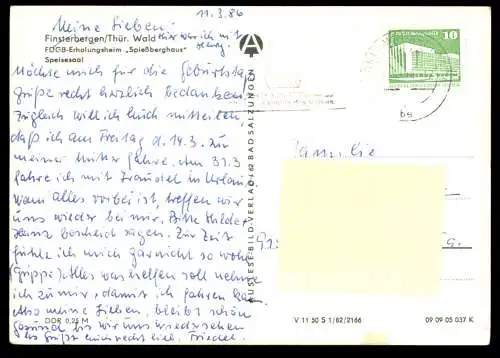 11.3.86
Meine Lieben!
Finsterbergen/Thür. Wald hier war ich mit
FDGB-Erholungsheim „Spießberghaus"
Speisesaal
Möchte mich für die Geburtstags
grüße recht herzlich bedanken
Zugleich will ich Euch mitteilen
daß ich am Freitag d. 14.3. zur
meiner Mutter fahre. Am 31.3
fahre ich mit Traudel in Urlaub,
wann alles vorbei ist, treffen wir
uns wieder bei mir. Bitte Hilde
bescheid sagen. Zur Zeit
fühle ich mich garnicht so wohl
(Grippe). Alles was helfen soll nehme
ich zu mir, damit ich fahren kann
Also meine Lieben, bleibt schön
gesund bis wir uns wiedersehen
Es grüßt euch recht viel. Friedel
DDR 0,25 M
AUSLESE-BILD-VERLAG 62 BAD SALZUNGEN
10
DDR
Familie
V 11 50 S 1/82/2166
09 09 05 037 K